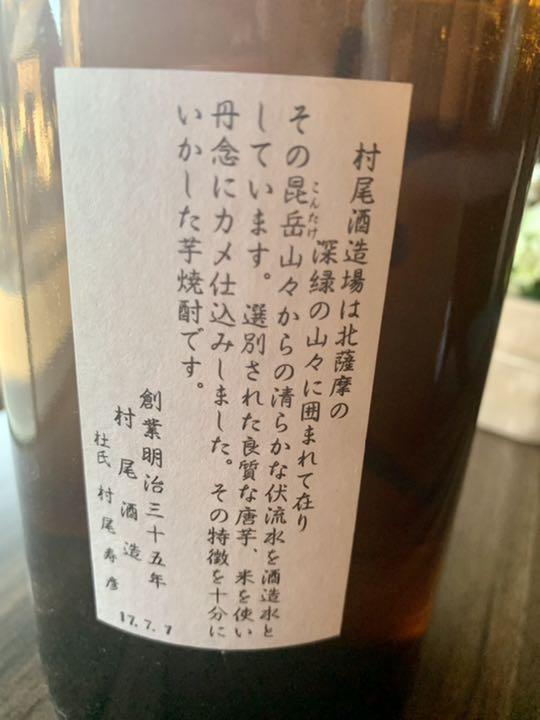 村尾酒造場は北薩摩の
深緑の山々に囲まれて在り
その昆岳山々からの清らかな伏流水を酒造水と
こんたけ
しています。選別された良質な唐芋、米を使い
丹念にカメ仕込みしました。その特徴を十分に
いかした芋焼酎です。
創業明治三十五年
村尾酒造
杜氏 村尾寿彦
17.7.7